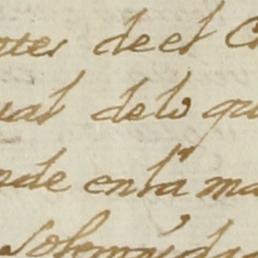 ntes de el C
ual de lo qu
nde en la ma
Solemnida